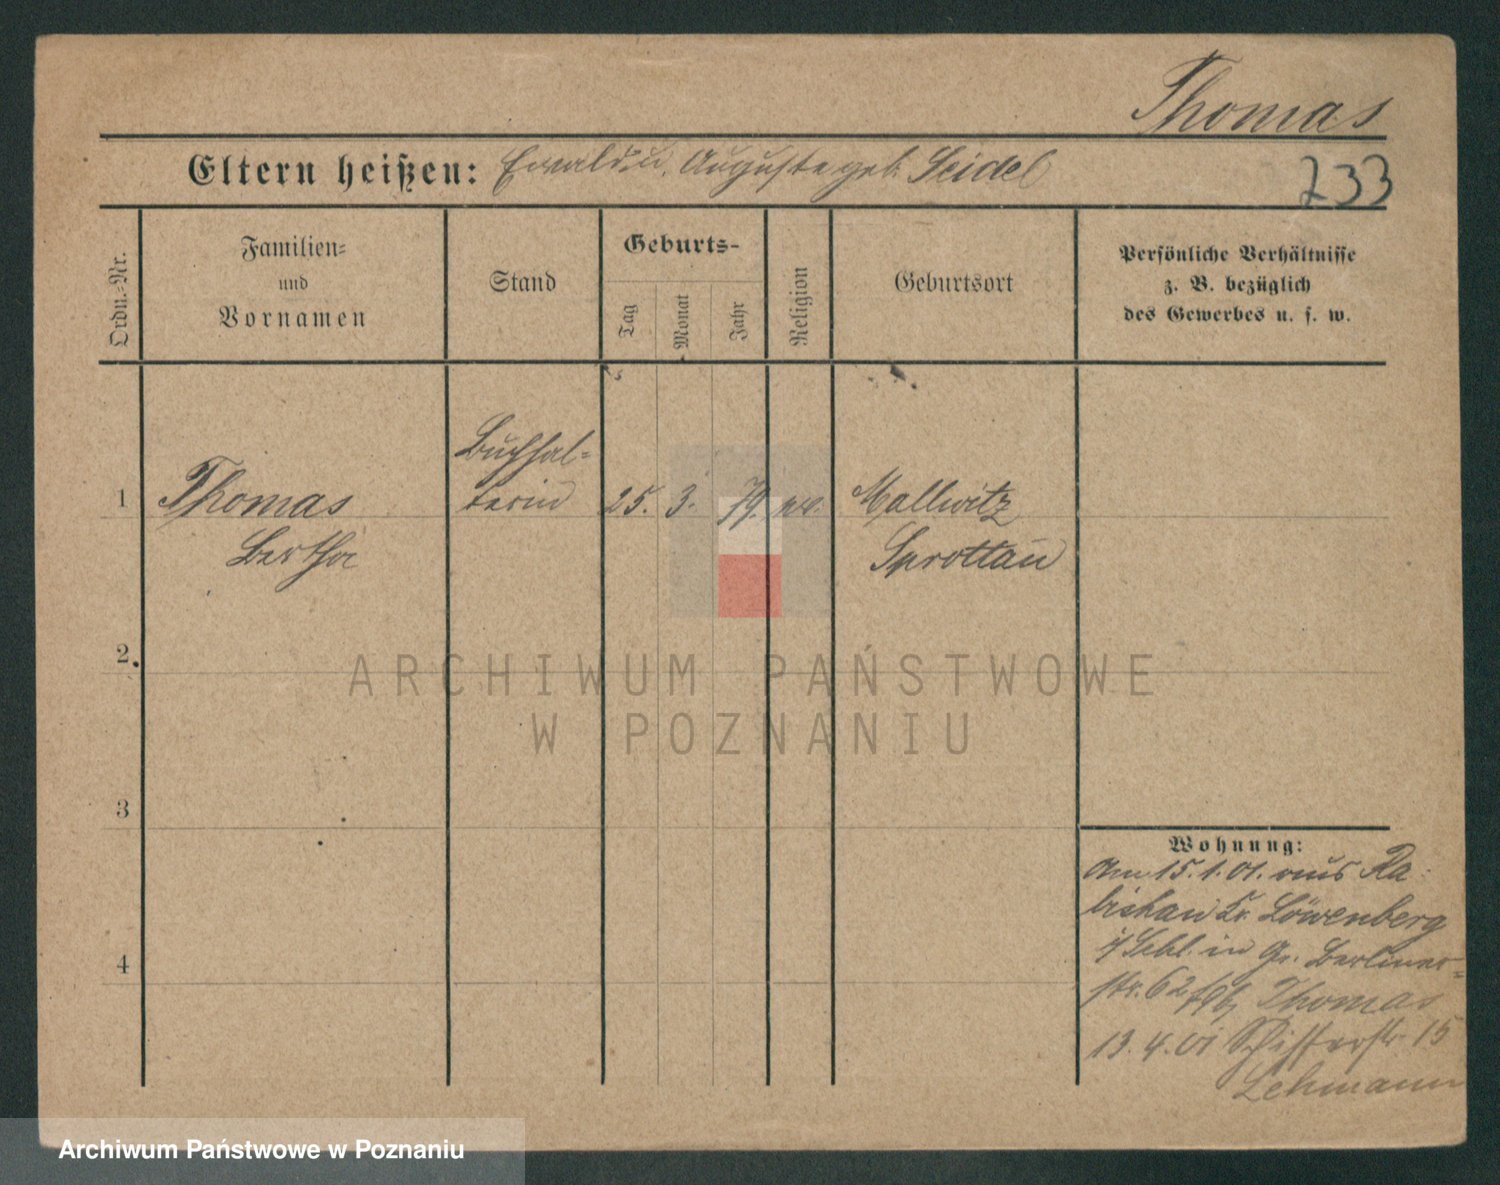 Thomas
Eltern heißen: Ewald u. Auguste geb. Seidel
233
Ordn.-Nr.
Familien-
und
Vornamen
Stand
Geburts-
Tag
Monat
Jahr
Religion
Geburtsort
Persönliche Verhältnisse
z. B. bezüglich
des Gewerbes u. s. w.
Buchhal-
1 Thomas terin 25. 3. 79. ev. Mallwitz
Bertha Sprottau
2
3
4
Wohnung:
Am 15.1.01. aus Ra-
bishau Kr. Löwenberg
i/Schl. in Gr. Berliner-
str. 62 Thomas
13.4.01 Schifferstr. 15
Lehmann
ARCHIWUM PAŃSTWOWE
W POZNANIU
Archiwum Państwowe w Poznaniu